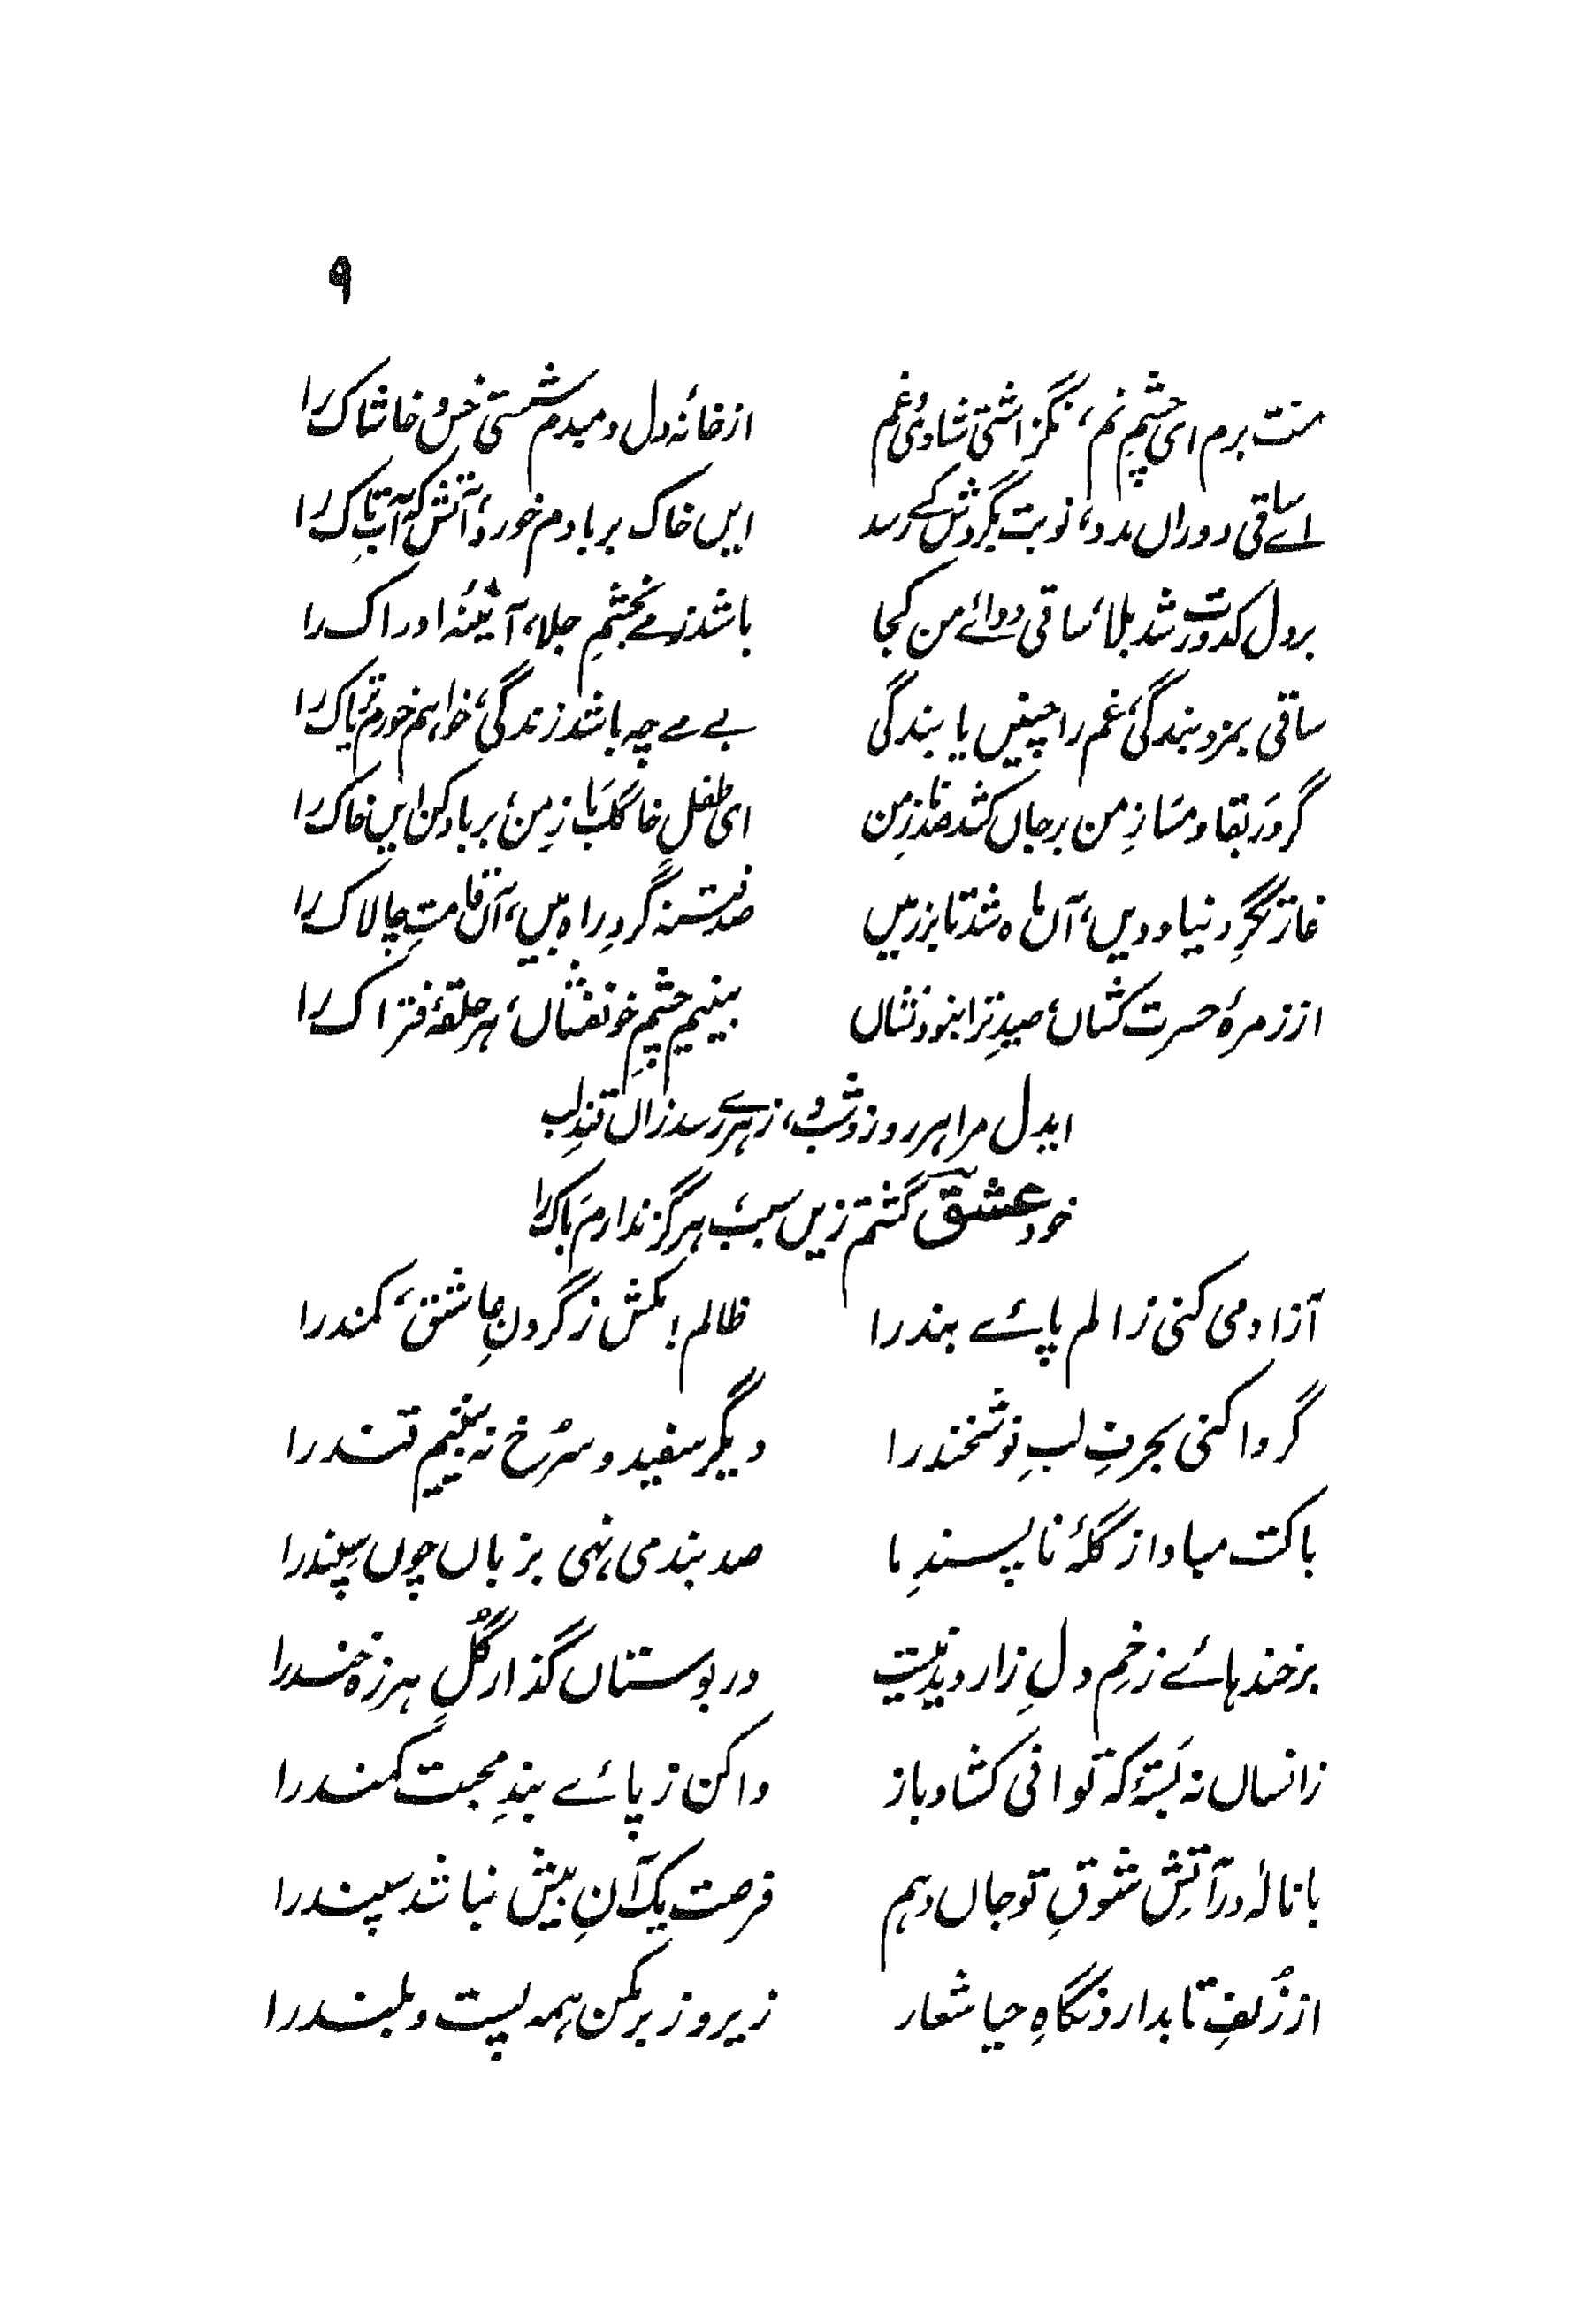 ۹
منت برم ای چشمِ نم، نگزاشتی شادیُ غم از خانۂ دل دمبدم شستی خس و خاشاک را
اے ساقی دوراں مدد، نوبت بگردش کے رسد ایں خاک بربادم خورد، آتش کہ آبِ تاک را
بر دل کدورت شد بلا، ساقی دوائے من کجا باشد ز مے بچشمِ جلا، آئینۂ ادراک را
ساقی بمزد بندگی، غم را چنیں یا بندگی بے مے چہ باشد زندگی، خواہم خورم تریاک را
گرورَ بقا دمسَازِ من بر جاں کشد صد نازِ من ای طفلِ خاکباَزِ من، برباد کن ایں خاک را
غارتگرِ دنیا و دیں، آں ماہ شد تا بر زمیں صد فتنہ گردِ راہ بیں، آں قامتِ چالاک را
از زمرۂ حسرت کشاں، صیدِ ترا بنود نشاں بینیم چشمِ خونفشاں، ہر حلقۂ فتراک را
ایدل مرا ہر روز و شب، زہرے رسد زاں قندِ لب
خود عشق گشتم زیں سبب، ہرگز ندارم باک را
آزاد می کنی ز الم پائے بند را ظالم! مکش ز گردنِ عاشق، کمند را
گر وا کنی بحرفِ لبِ نوشخند را دیگر سفید و سُرخ نہ بینیم قند را
باکت مباد از گلۂ ناپسندِ ما صد بند می نہی بزباں چوں سپند را
بر خندہائے زخمِ دلِ زار دیدنیست در بوستاں گذار گُلِ ہرزہ خند را
زانساں نہ بَستۂ کہ توانی کشاد باز وا کن ز پائے بندِ محبت کمند را
با نالہ در آتشِ شوقِ تو جاں دہم فرصت یک آنِ بیش نباشد سپند را
از زُلفِ تابدار و نگاہِ حیا شعار زیر و زبر مکن ہمہ پست و بلند را